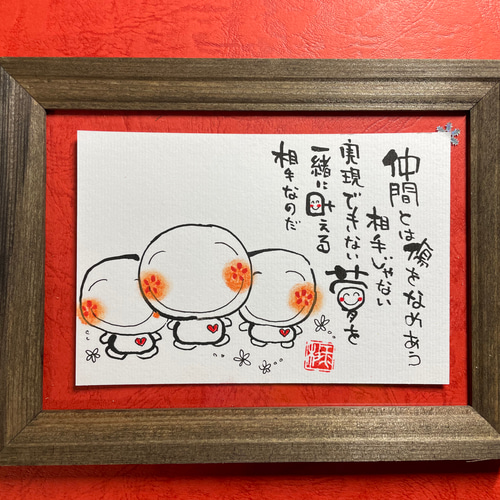 仲間とは傷をなめあう
相手じゃない
実現できない夢を
一緒に叶える
相手なのだ